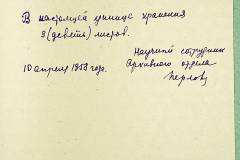 В настоящей единице хранения
9 (девять) листов.
Научный сотрудник
10 апреля 1953 года. Архивного отдела